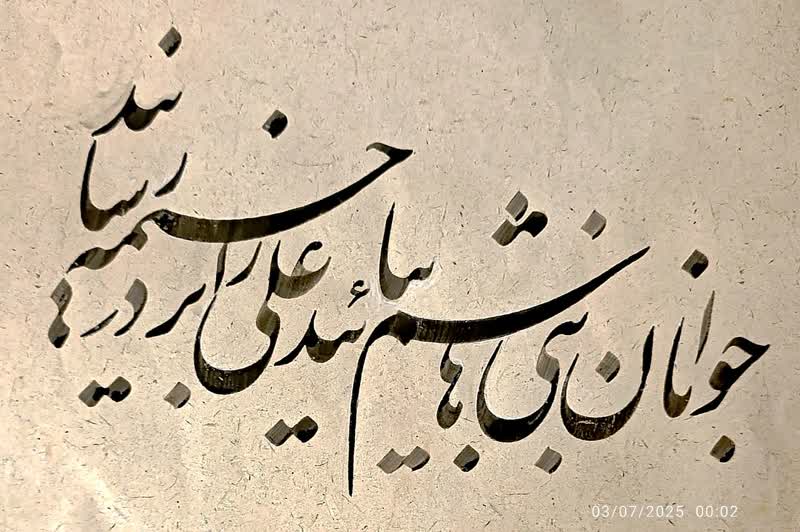 جوانان بنی هاشم بیائید علی را بر در خیمه رسانید
03/07/2025 00:02